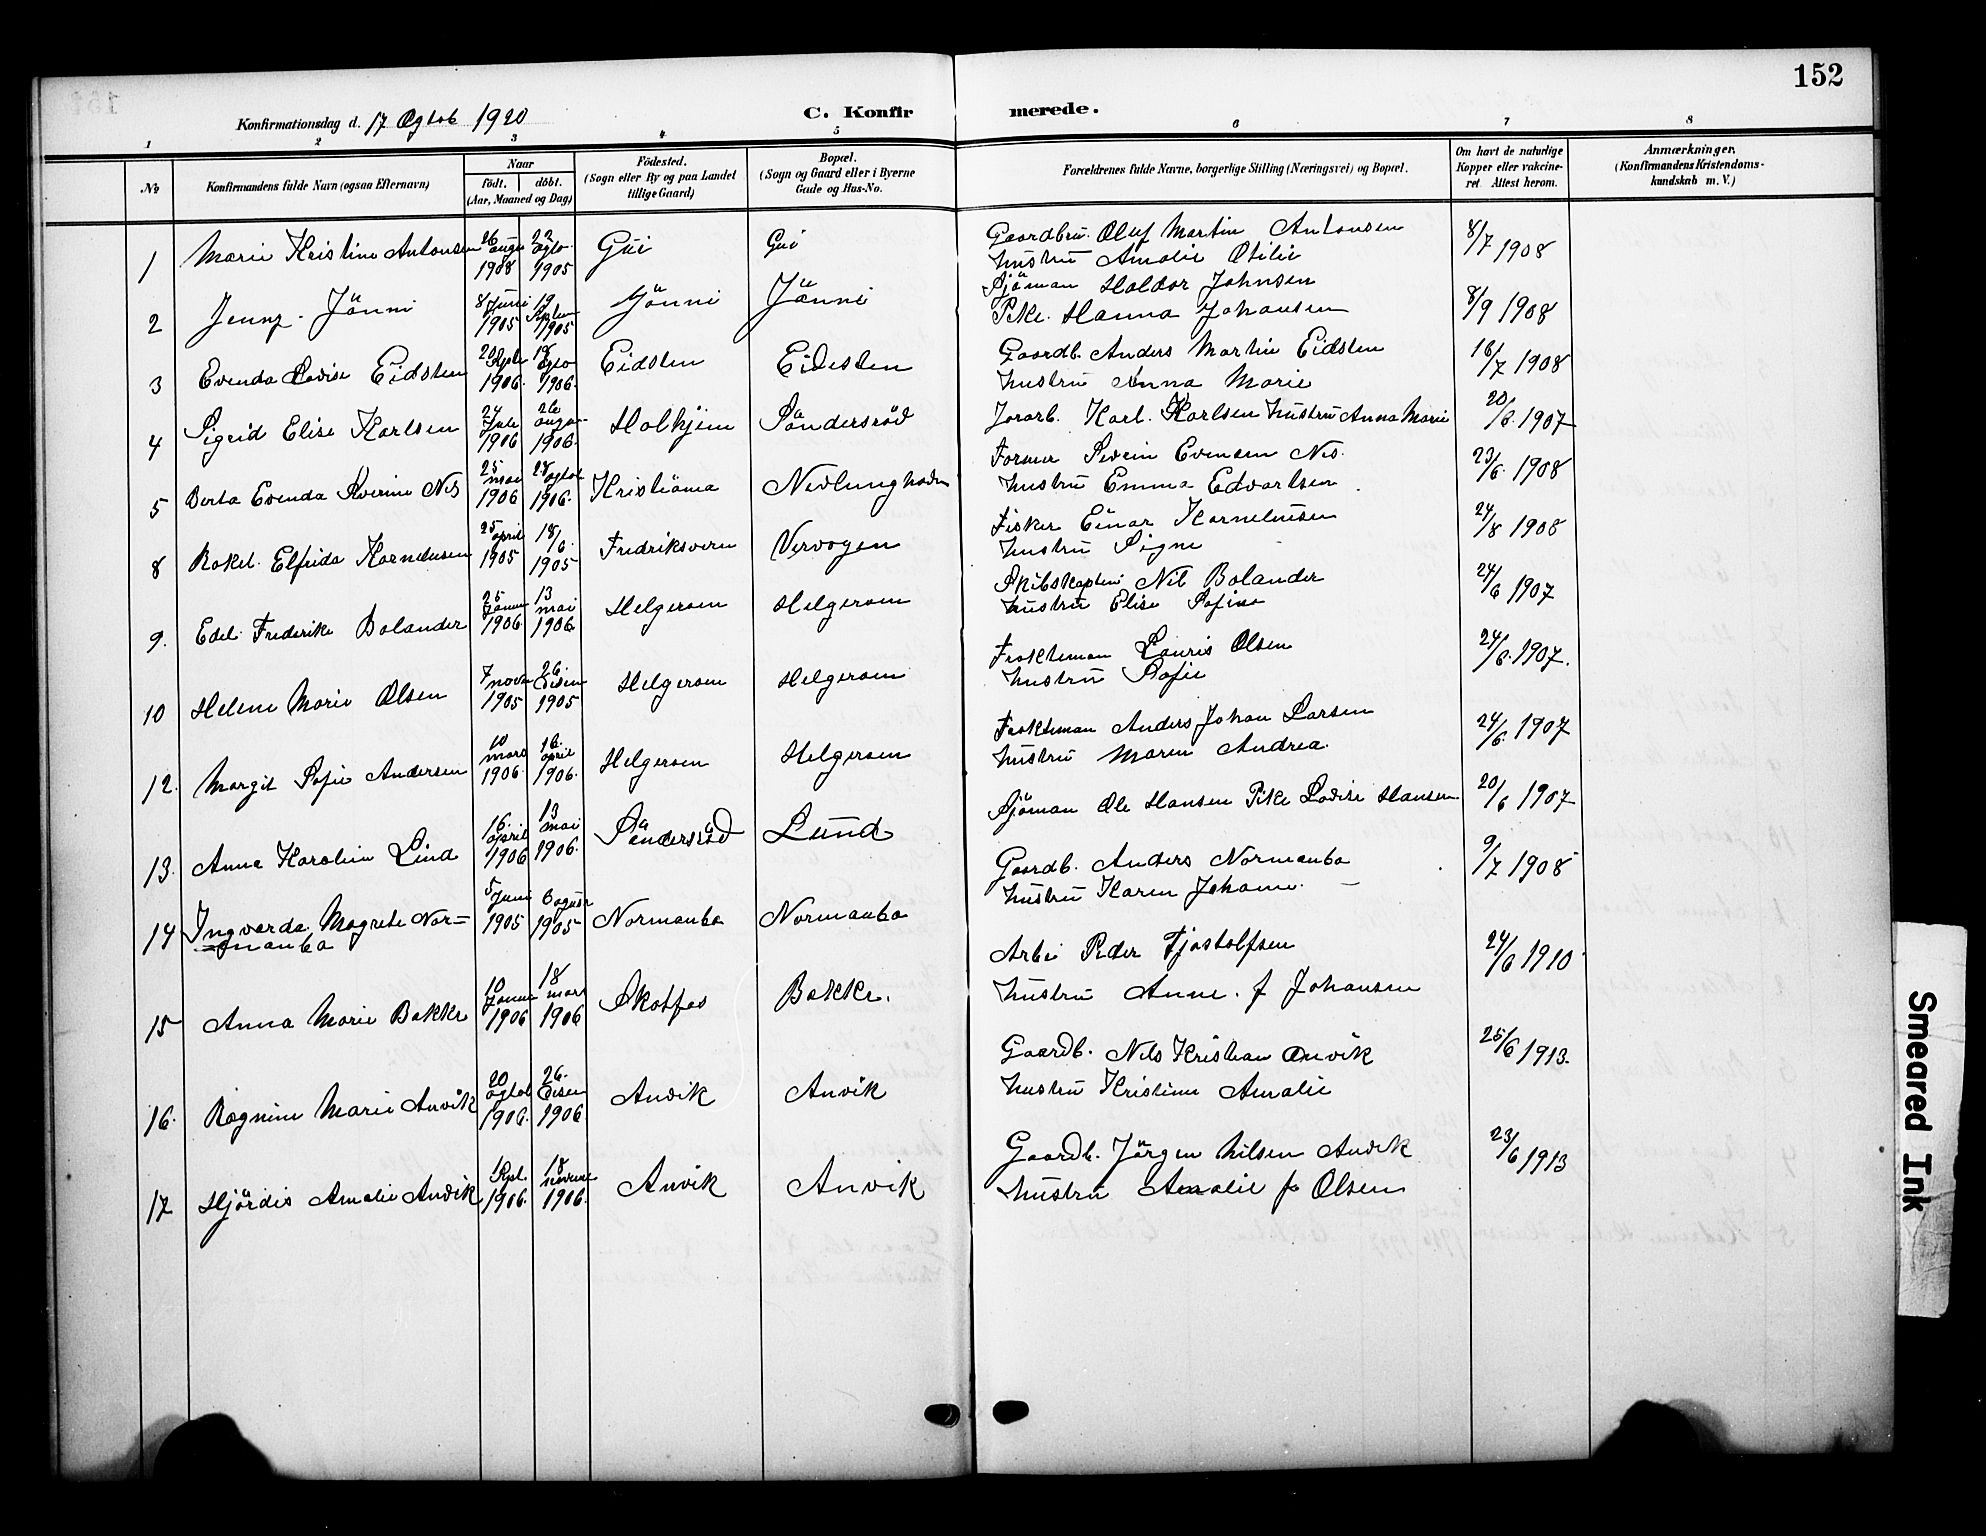 152
Konfirmationsdag d. 17 Ogtob 1920
C. Konfirmerede.
1 2 3 4 5 6 7 8
No
Konfirmandens fulde Navn (ogsaa Efternavn)
Naar
født. døbt.
(Aar, Maaned og Dag)
Fødested.
(Sogn eller By og paa Landet
tillige Gaard)
Bopæl.
(Sogn og Gaard eller i Byerne
Gade og Hus-No.
Forældrenes fulde Navne, borgerlige Stilling (Næringsvei) og Bopæl.
Om havt de naturlige
Kopper eller vakcine-
ret. Attest herom.
Anmærkninger.
(Konfirmandens Kristendoms-
kundskab m. V.)
1 Marie Kristine Antonsen 26 augu 1908 22 ogto. 1905 Gui Gui Gaardbru. Oluf Martin Antonsen 8/7 1908
hustru Amalie Otilie
2 Jenny. Jönni 8 Juni 1905 19 Septem 1905 Jönni Jönni Sjöman Haldor Johnsen
Pike. Hanna Johansen 8/9 1908
3 Evenda Lovise Eidsten 20 Septe 1906. 18 Ogto 1906. Eidsten Eidesten Gaardb. Anders Martin Eidsten 16/7 1908
hustru Anna Marie
4 Sigrid Elise Karlsen 24 Jule 1906 26 augu 1906. Holkjem Söndersröd Jorarb. Karl. Karlsen hustru Anna Marie 20/6. 1907
5 Berta Evenda Severine Nes 25 mai 1906 28 ogtob 1906. Kristiania Nevlunghavn Former Severin Evensen Nes. 23/6. 1908
hustru Emma Edvartsen
8 Rakel. Elfrida Kornelusen 25 april 1905 18/6. 1905 Fredriksvern Vervagen Fisker Einar Kornelusen 24/8 1908
hustru Signe
9. Edel. Frederike Bolander 25 Januar 1906 13 mai 1906. Helgeroen Helgeroen Skibskaptein Nil Bolander 24/6 1907
hustru Elise Sofine
10 Helene Marie Olsen 7 novem 1905 26. Desem 1905 Helgeroen Helgeroen Frakteman Lauris Olsen 24/6. 1907.
hustru Sofie
12. Margit Sofie Andersen 10 mars 1906. 16. april 1906. Helgeroen Helgeroen Fraktman Anders Johan Larsen 24/6. 1907
hustru Maren Andrea.
13. Anna Karolin Lind 16. april 1906 13 mai 1906. Söndersröd Lund Sjöman Ole Hansen Pike Lovise Hansen 20/6 1907
14 Ingvarda Magrete Nor= 5 Juni 1905 6 august 1905 Normanba Normanba Gaardb. Anders Normanba 9/7 1908
=manba hustru Karen Johanne.
15 Anna Marie Bakke 10 Januar 1906 18 mars 1906 Skotfos Bakke. Arbei Peder Fjostolfsen 24/6 1910
hustru Anne. f Johansen
16. Ragnine Marie Anvik 20 ogtob 1906. 26. Desem 1906 Anvik Anvik Gaardb. Nils Kristian Anvik 25/6 1913.
hustru Kristine Amalie
17 Hjördis Amalie Anvik 1 Sept. 1906. 18 november 1906. Anvik Anvik Gaardb. Jörgen Nilsen Anvik 23/6 1913
hustru Amalie f Olsen
Smeared Ink